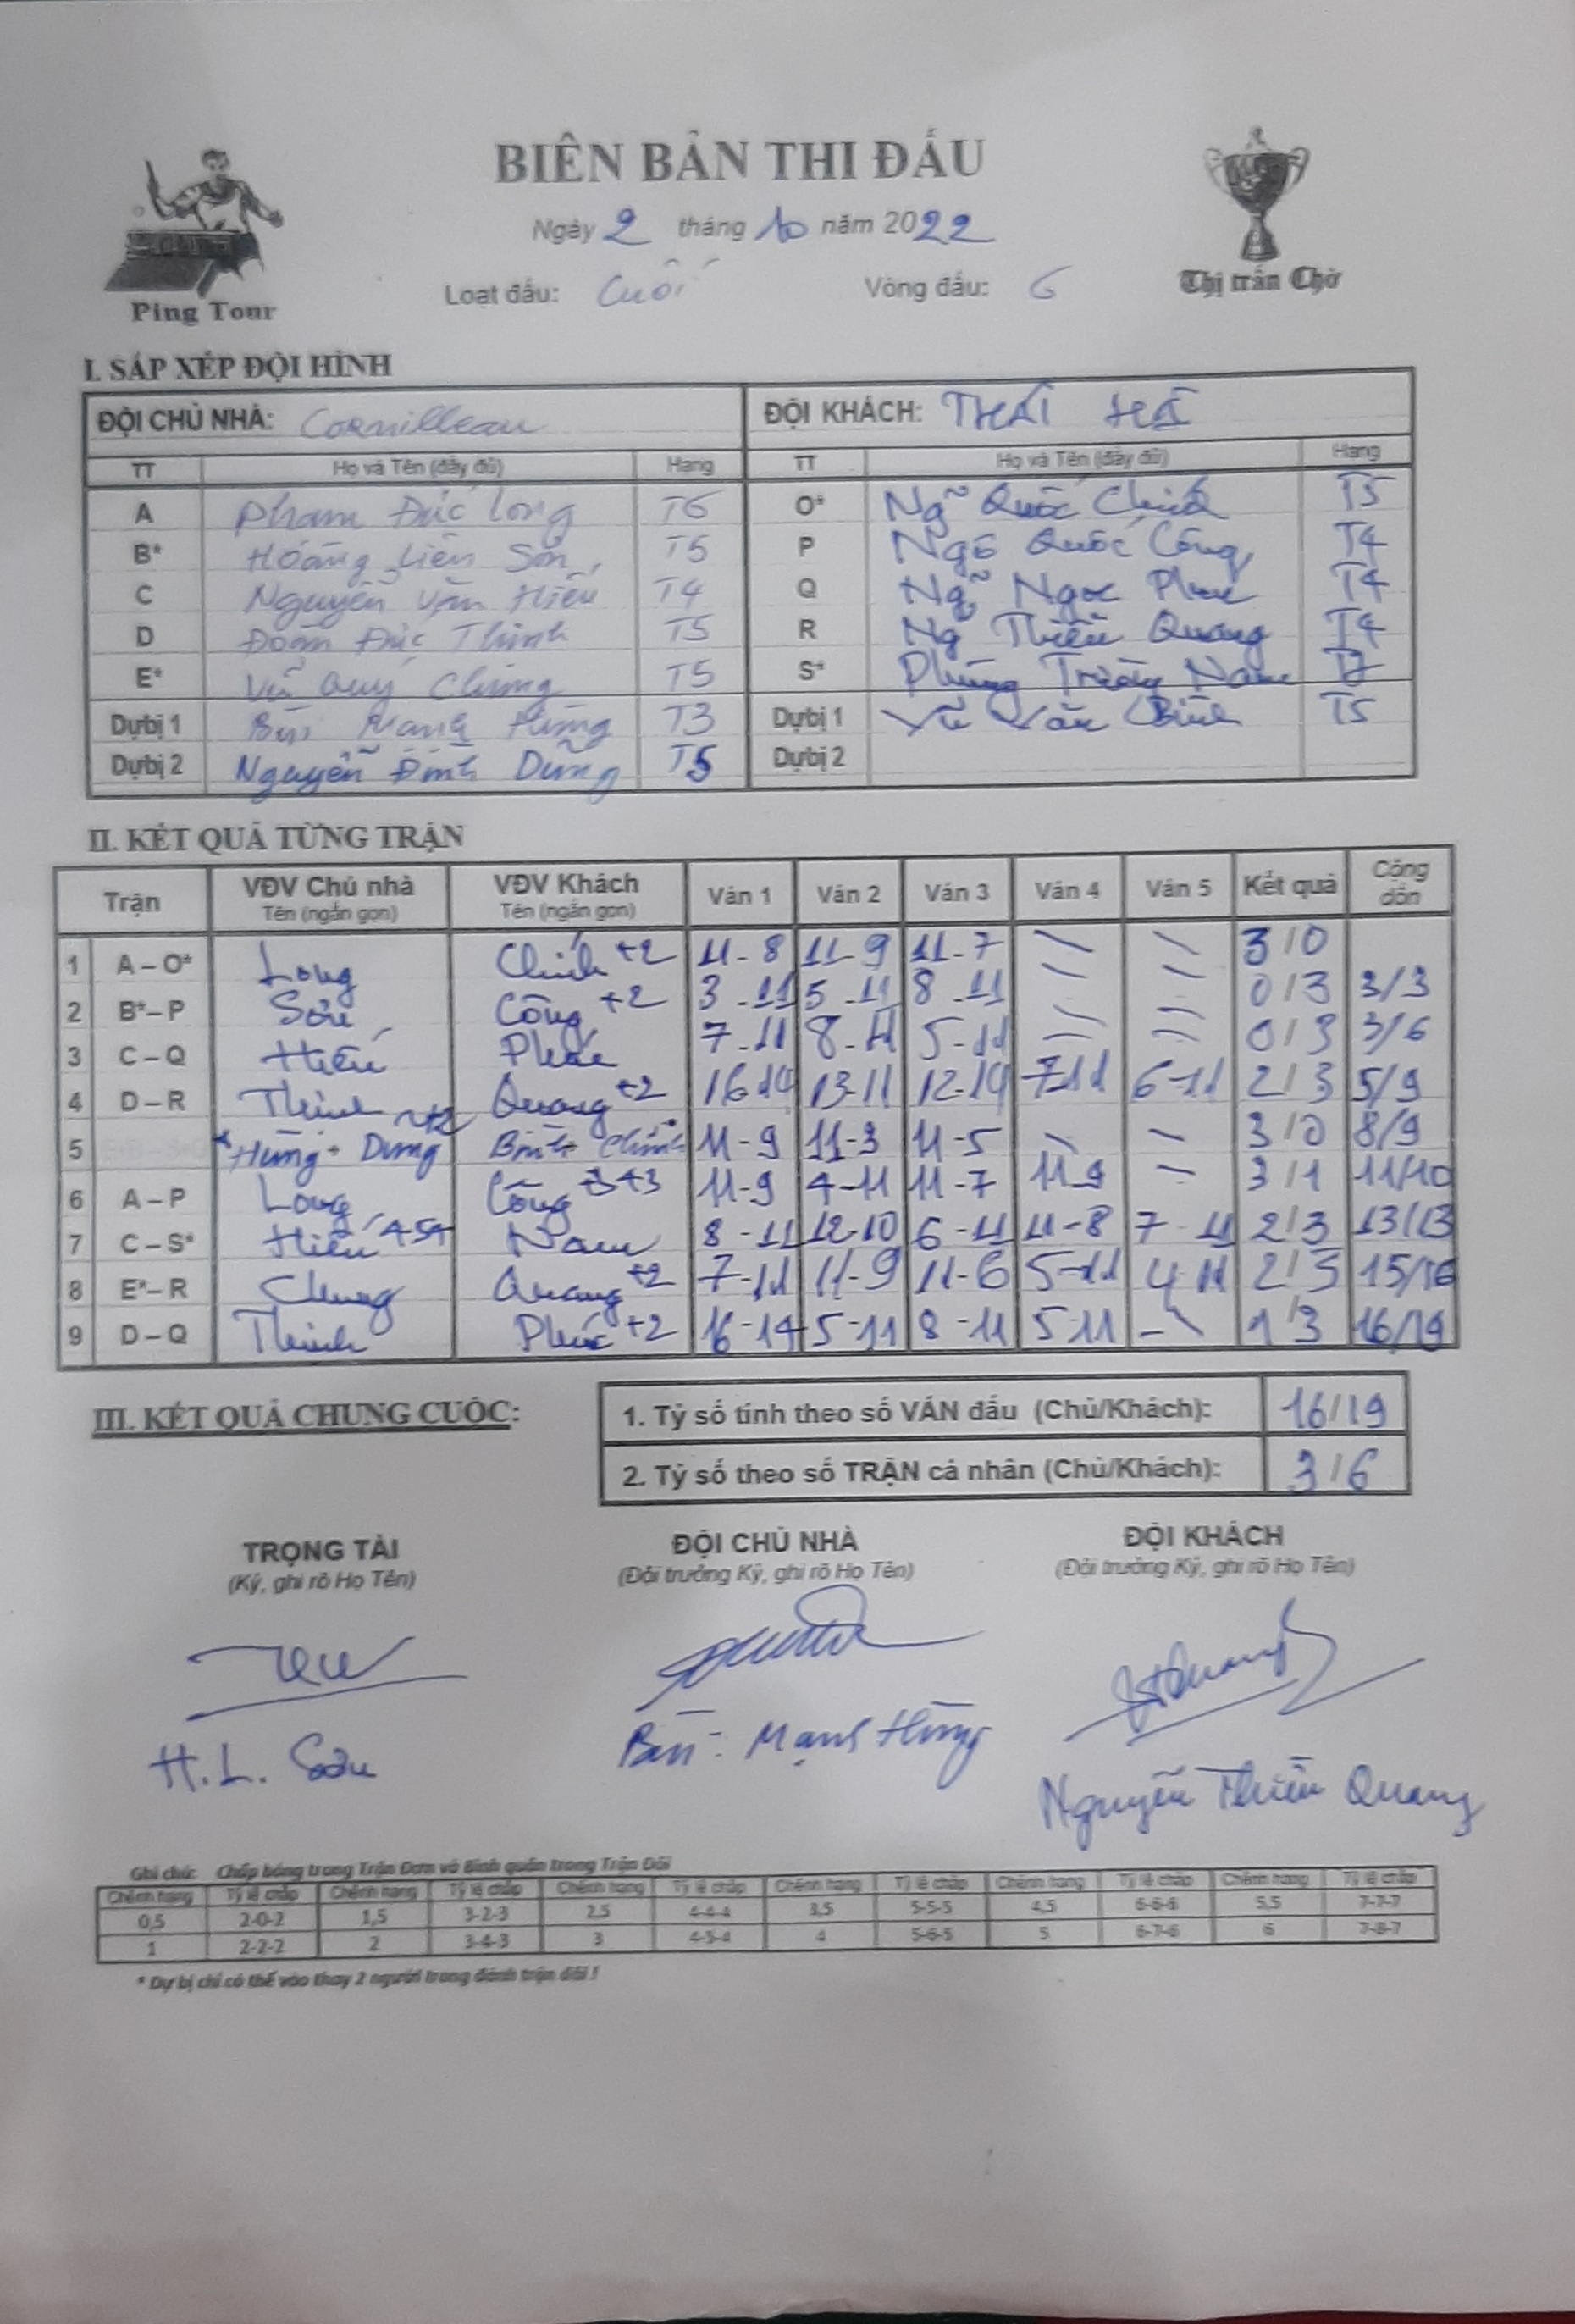 BIÊN BẢN THI ĐẤU
Ngày 2 tháng 10 năm 2022
Ping Tour
Thị trấn Chờ
Loạt đấu: Cuối Vòng đấu: 6
I. SẮP XẾP ĐỘI HÌNH
ĐỘI CHỦ NHÀ: Cornilleau ĐỘI KHÁCH: THÁI HÀ
TT Họ và Tên (đầy đủ) Hạng TT Họ và Tên (đầy đủ) Hạng
A Phạm Đức Long T6 O* Ngỹ Quốc Chính T5
B* Hoàng Liên Sơn T5 P Ngô Quốc Công T4
C Nguyễn Văn Hiếu T4 Q Ngỹ Ngọc Phúc T4
D Đoàn Đức Thịnh T5 R Ng Thiều Quang T4
E* Vũ Quý Chung T5 S* Phùng Nam
Dự bị 1 Bùi Mạnh Hùng T3 Dự bị 1 Vũ Văn Bình T5
Dự bị 2 Nguyễn Đình Dũng T5 Dự bị 2
II. KẾT QUẢ TỪNG TRẬN
Trận VĐV Chủ nhà Tên (ngắn gọn) VĐV Khách Tên (ngắn gọn) Ván 1 Ván 2 Ván 3 Ván 4 Ván 5 Kết quả Cộng dồn
1 A – O* Long Chính +2 11-8 11-9 11-7 3/0
2 B* – P Sơn Công +2 3-11 5-11 8-11 0/3 3/3
3 C – Q Hiếu Phúc 7-11 8-11 5-11 0/3 3/6
4 D – R Thịnh Quang +2 16-14 13-11 12-14 7-11 6-11 2/3 5/9
5 Hùng + Dũng Bình + Chính 11-9 11-3 11-5 3/0 8/9
6 A – P Long Công +3+3 11-9 4-11 11-7 11-9 3/1 11/10
7 C – S* Hiếu 454 Nam 8-11 12-10 6-11 11-8 7-11 2/3 13/13
8 E* – R Chung Quang +2 7-11 11-9 11-6 5-11 4-11 2/3 15/16
9 D – Q Thịnh Phúc +2 16-14 5-11 8-11 5-11 1/3 16/19
III. KẾT QUẢ CHUNG CUỘC:
1. Tỷ số tính theo số VÁN đấu (Chủ/Khách): 16/19
2. Tỷ số theo số TRẬN cá nhân (Chủ/Khách): 3/6
TRỌNG TÀI ĐỘI CHỦ NHÀ ĐỘI KHÁCH
(Ký, ghi rõ Họ Tên) (Đội trưởng Ký, ghi rõ Họ Tên) (Đội trưởng Ký, ghi rõ Họ Tên)
H.L. Sơn Bùi Mạnh Hùng Nguyễn Thiều Quang
Ghi chú: Chấp bóng trong Trận Đơn và Bình quân trong Trận Đôi
Chênh hạng Tỷ lệ chấp Chênh hạng Tỷ lệ chấp Chênh hạng Tỷ lệ chấp Chênh hạng Tỷ lệ chấp Chênh hạng Tỷ lệ chấp Chênh hạng Tỷ lệ chấp
0,5 2-0-2 1,5 3-2-3 2,5 4-4-4 3,5 5-5-5 4,5 6-6-6 5,5 7-7-7
1 2-2-2 2 3-4-3 3 4-5-4 4 5-6-5 5 6-7-6 6 7-8-7
* Dự bị chỉ có thể vào thay 2 người trong đánh trận đôi !